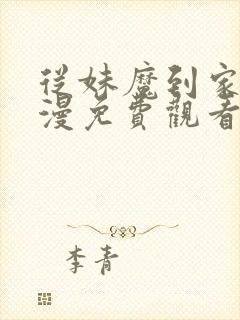 從妹魔到家
漫免費觀看
李青